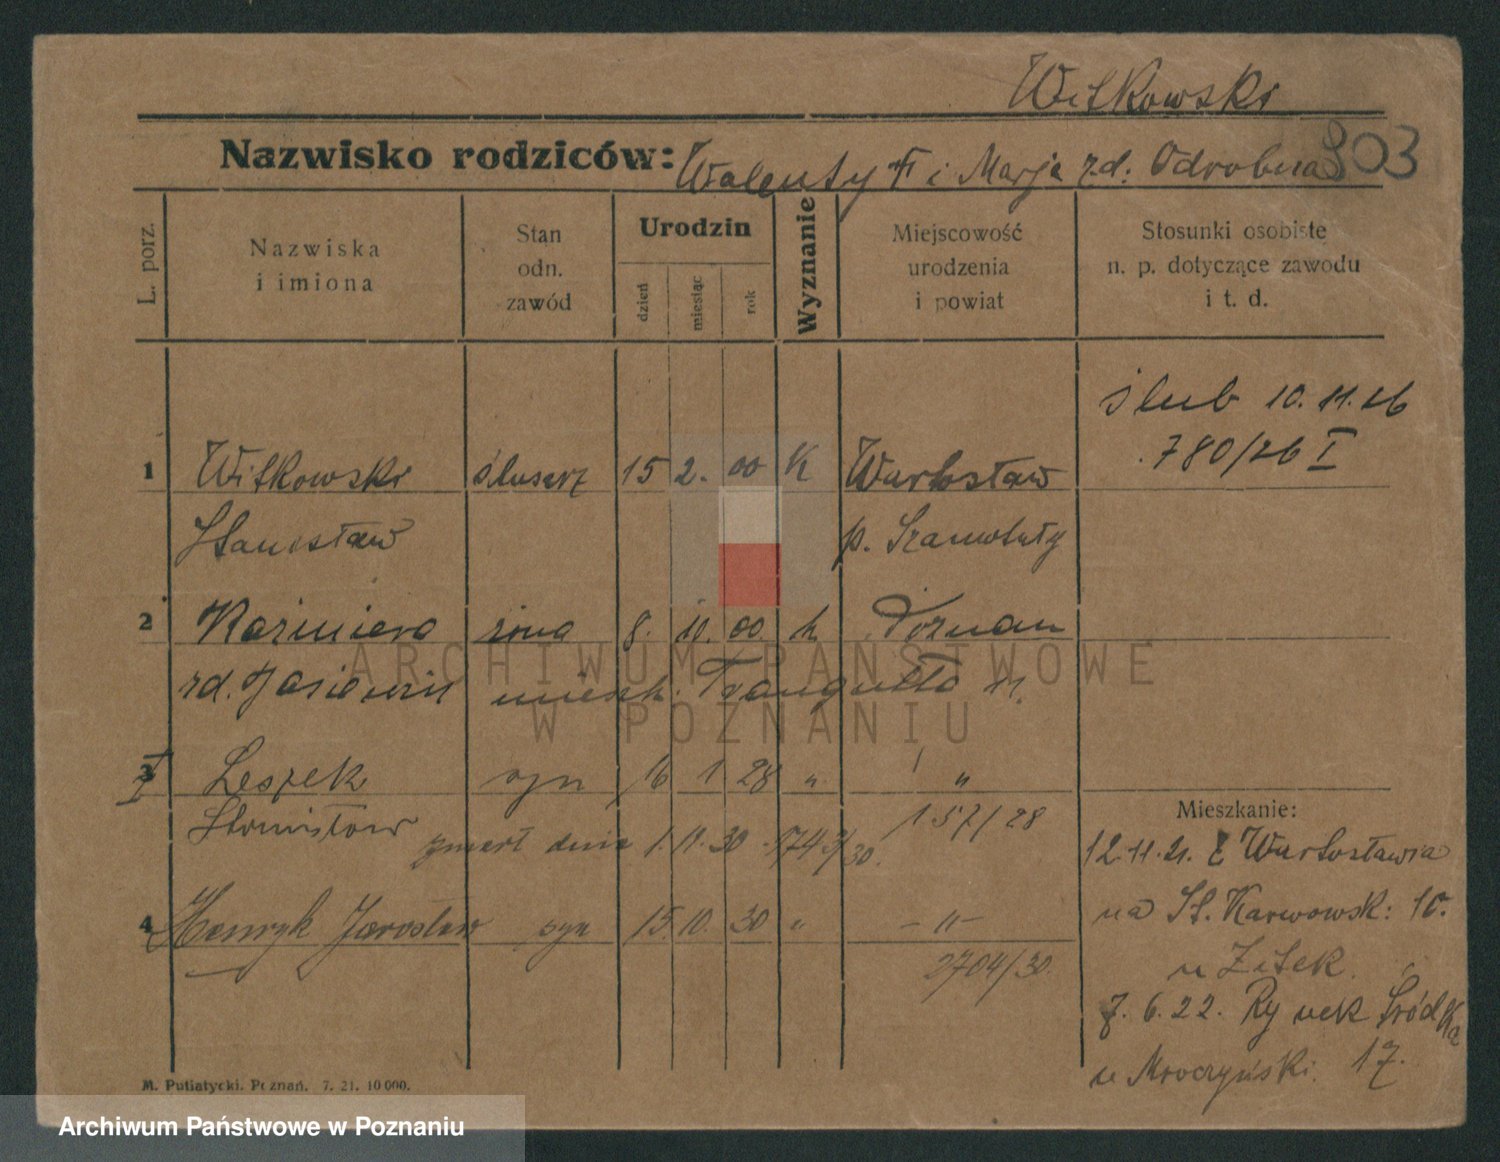 Witkowski
Nazwisko rodziców: Walenty † i Marja z.d. Odrobna
803
L. porz.
Nazwiska
i imiona
Stan
odn.
zawód
Urodzin
dzień
miesiąc
rok
Wyznanie
Miejscowość
urodzenia
i powiat
Stosunki osobiste
n. p. dotyczące zawodu
i t. d.
ślub 10.11.26
780/26 I
1 Witkowski ślusarz 15 2. 00 K Wartosław
Stanisław p. Szamotuły
2 Kazimiera żona 8. 10. 00. k Poznan
rd. Jasiewicz mieszk. Traugutta
3 Leszek syn 16 1 28 " "
Stanisław 157/28
zmarł dnia 1.11.30 1743/30.
4 Henryk Jarosław syn 15. 10. 30 " - " -
2704/30
Mieszkanie:
12.11.21. z Wartosławia
na St. Karwowsk: 10.
u Zitek.
7.6.22. Rynek Śródka
u Mroczyński. 17.
M. Putiatycki. Poznań. 7. 21. 10 000.
ARCHIWUM PAŃSTWOWE
W POZNANIU
Archiwum Państwowe w Poznaniu